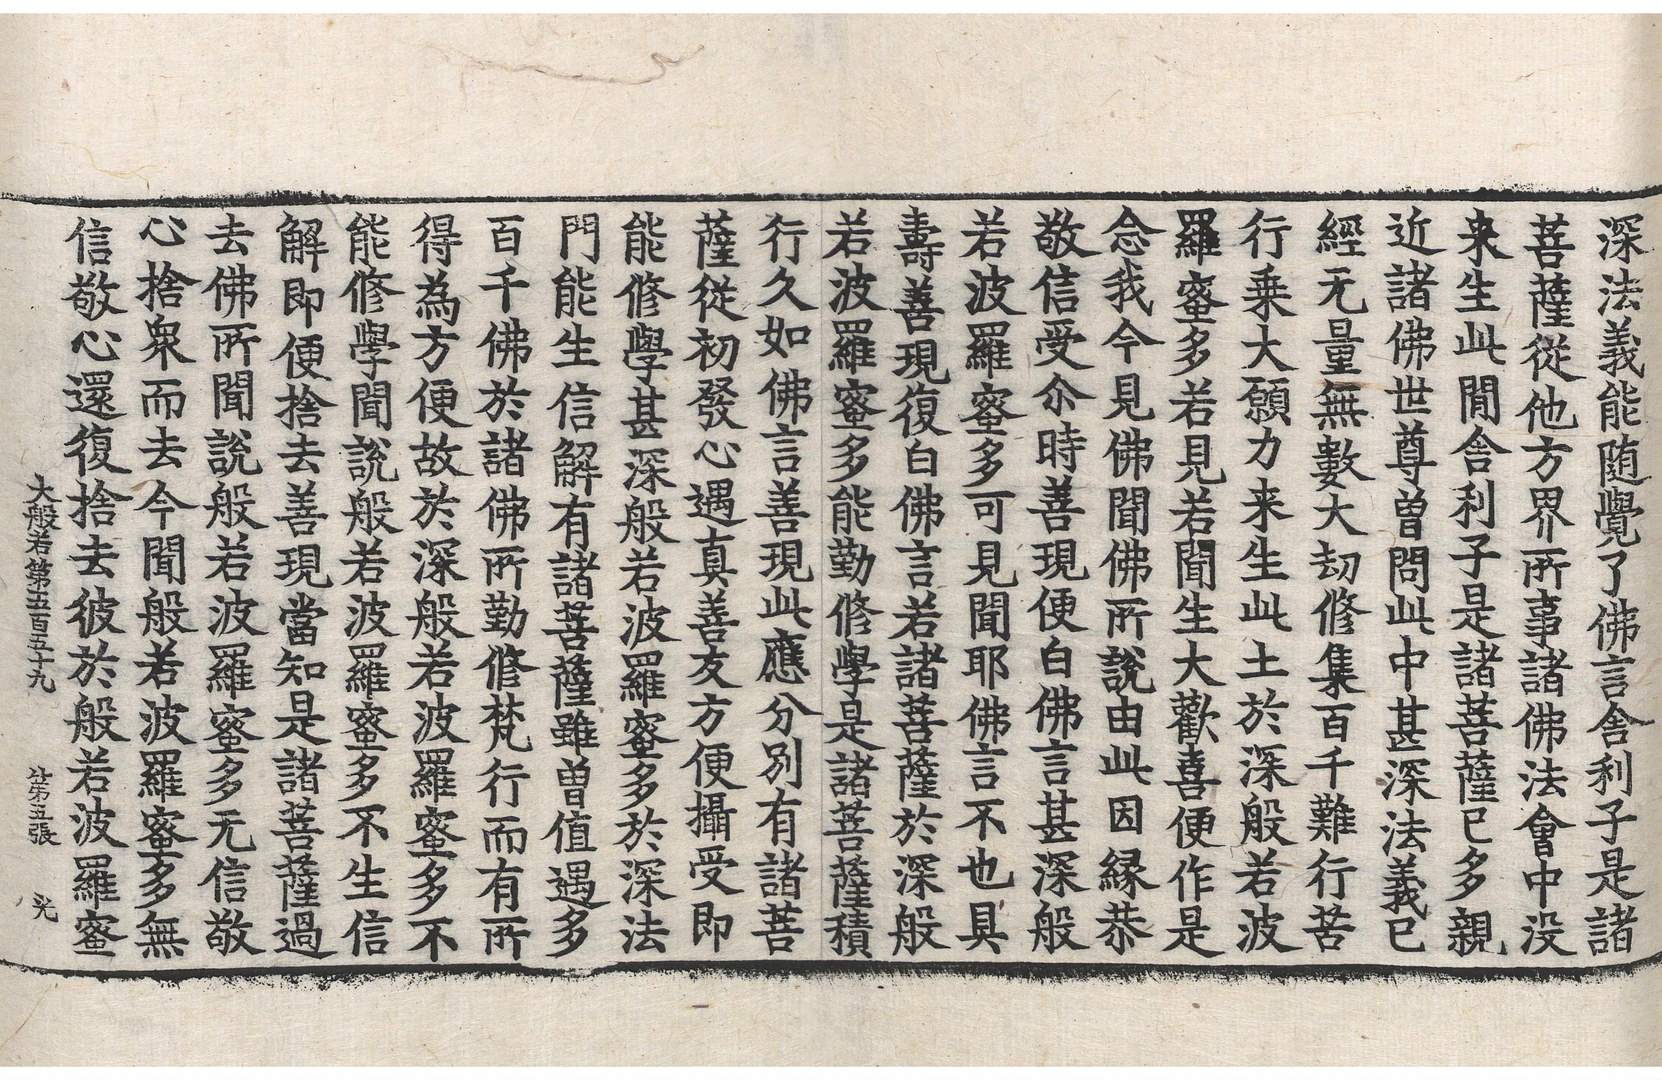 深法義能随覺了佛言舎利子是諸
菩薩從他方界所事諸佛法會中没
来生此閒舎利子是諸菩薩已多親
近諸佛世尊曾問此中甚深法義已
經无量無數大劫修集百千難行苦
行乗大願力来生此土於深般若波
羅蜜多若見若聞生大歡喜便作是
念我今見佛聞佛所說由此因縁恭
敬信受尒時善現便白佛言甚深般
若波羅蜜多可見聞耶佛言不也具
壽善現復白佛言若諸菩薩於深般
若波羅蜜多能勤修學是諸菩薩積
行久如佛言善現此應分別有諸菩
薩從初發心遇真善友方便攝受即
能修學甚深般若波羅蜜多於深法
門能生信解有諸菩薩雖曽值遇多
百千佛於諸佛所勤修梵行而有所
得為方便故於深般若波羅蜜多不
能修學聞說般若波羅蜜多不生信
解即便捨去善現當知是諸菩薩過
去佛所聞說般若波羅蜜多无信敬
心捨衆而去今聞般若波羅蜜多無
信敬心還復捨去彼於般若波羅蜜
大般若第五百五十九 第五張 光